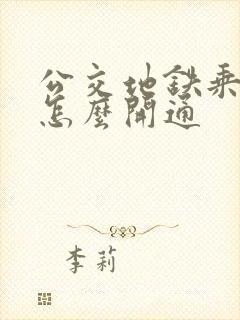 公交地铁乘
怎麼開通
李莉